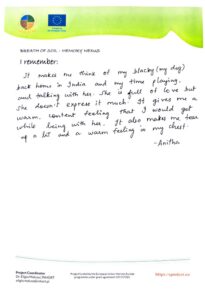 BREATH OF SOIL : MEMORY MENUS
I remember:
It makes me think of my blacky (my dog)
back home in India and my time playing,
and talking with her. She is full of love but
she doesn't express it much. It gives me a
warm, content feeling that I would get
while being with her. It also makes me tear
up a bit and a warm feeling in my chest.
-Anitha
Project Coordinator